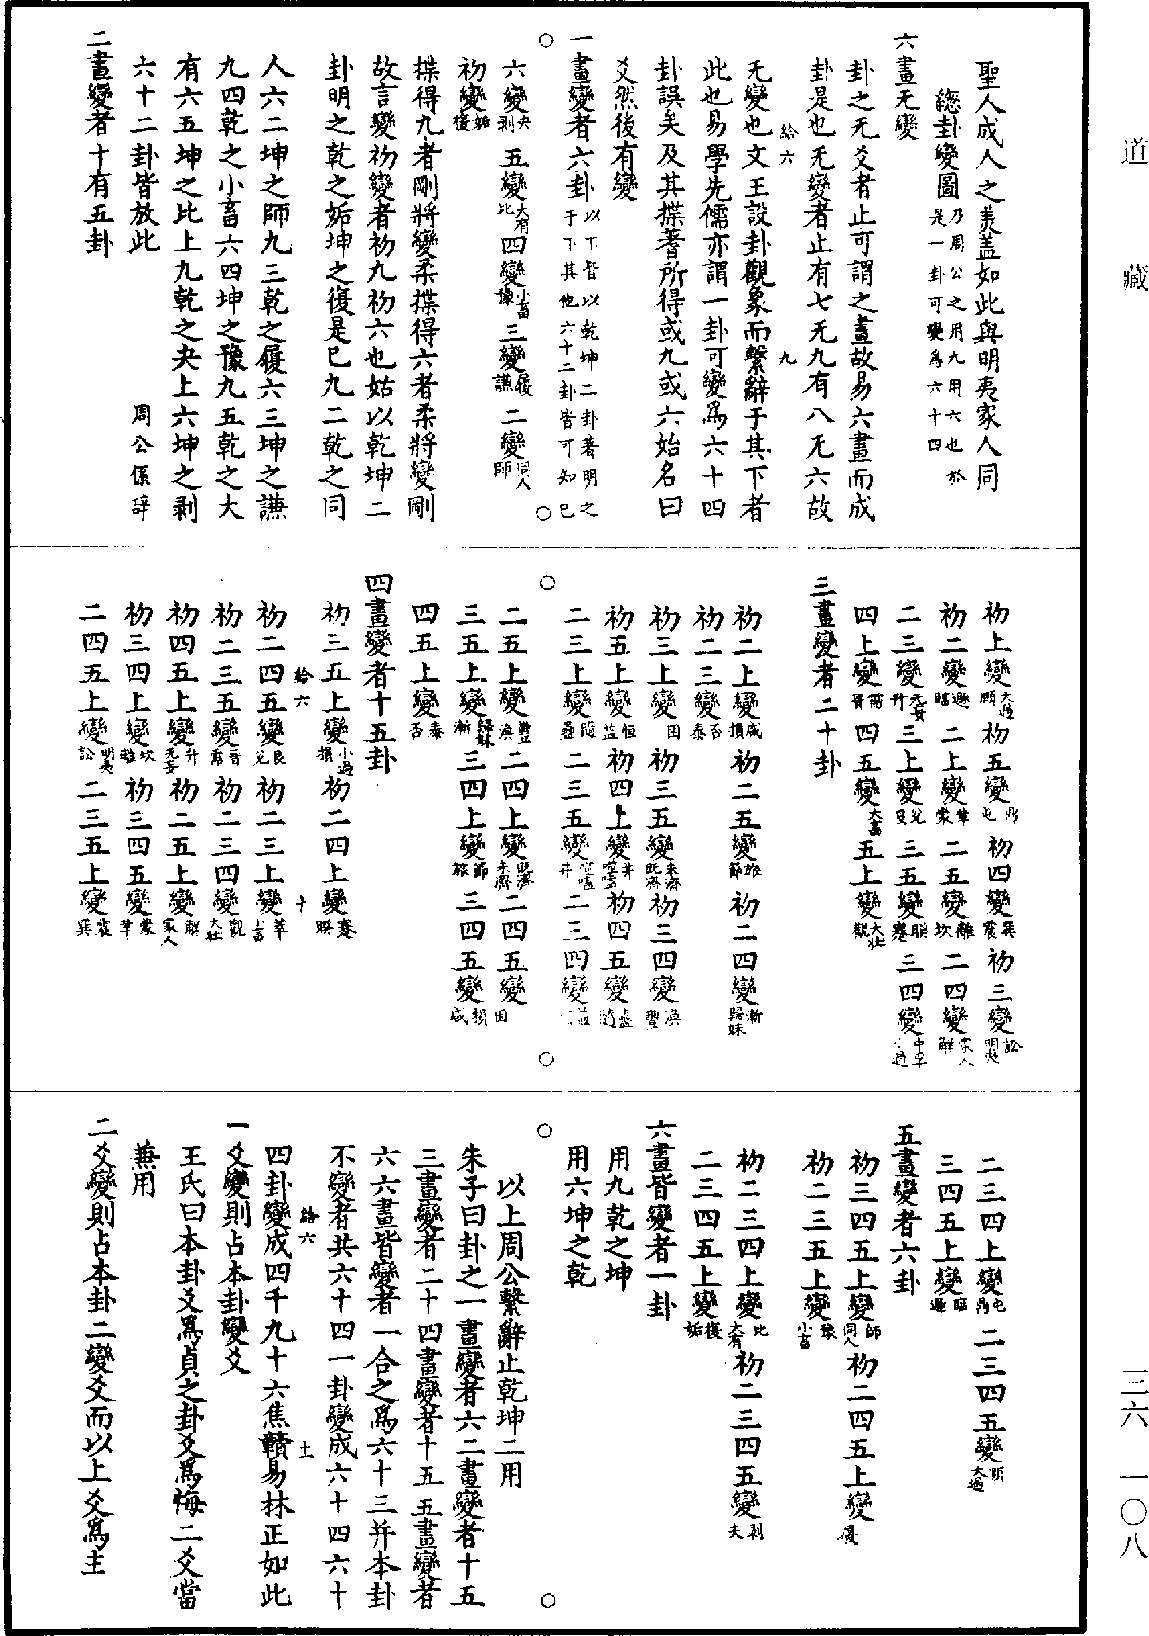 道藏
三六 一〇八
聖人成人之美蓋如此與明夷家人同
總卦變圖 乃周公之用九用六也於是一卦可變為六十四
六畫无變
卦之无爻者止可謂之畫故易六畫而成
卦是也无變者止有七无九有八无六故
无變也文王設卦觀象而繫辭于其下者
給六 九
此也易學先儒亦謂一卦可變爲六十四
卦誤矣及其揲蓍所得或九或六始名曰
爻然後有變
一畫變者六卦 以下皆以乾坤二卦著明之于下其他六十二卦皆可知已
六變夬剥 五變大有比 四變小畜豫 三變履謙 二變同人師
初變姤復
揲得九者剛將變柔揲得六者柔將變剛
故言變初變者初九初六也姑以乾坤二
卦明之乾之姤坤之復是已九二乾之同
人六二坤之師九三乾之履六三坤之謙
九四乾之小畜六四坤之豫九五乾之大
有六五坤之比上九乾之夬上六坤之剥
六十二卦皆放此 周公係辝
二畫變者十有五卦
初上變大過頤 初五變鼎屯 初四變巽震 初三變訟明夷
初二變遯臨 二上變革蒙 二五變離坎 二四變家人解
二三變无妄升 三上變兌艮 三五變睽蹇 三四變中孚小過
四上變需晉 四五變大畜 五上變大壯觀
三畫變者二十卦
初二上變咸損 初二五變旅節 初二四變漸歸妹
初二三變否泰
初三上變困 初三五變未濟既濟 初三四變渙豐
初五上變恒益 初四上變井噬嗑 初四五變蠱隨
二三上變隨蠱 二三五變噬嗑井 二三四變益
二五上變豐渙 二四上變既濟未濟 二四五變困
三五上變歸妹漸 三四上變節旅 三四五變損咸
四五上變泰否
四畫變者十五卦
初三五上變小過損 初二四上變蹇睽
給六 十
初二四五變艮兌 初二三上變萃小畜
初二三五變晉 初二三四變觀大壯
初四五上變升无妄 初二五上變睽家人
初三四上變坎離 初三四五變蒙革
二四五上變明夷訟 二三五上變震巽
二三四上變屯鼎 二三四五變頤大過
三四五上變臨遯
五畫變者六卦
初三四五上變師同人 初二四五上變履
初二三五上變豫小畜
初二三四上變比大有 初二三四五變剥夬
二三四五上變復姤
六畫皆變者一卦
用九乾之坤
用六坤之乾
以上周公繫辭止乾坤二用
朱子曰卦之一畫變者六二畫變者十五
三畫變者二十四畫變者十五五畫變者
六六畫皆變者一合之爲六十三并本卦
不變者共六十四一卦變成六十四六十
給六 土
四卦變成四千九十六焦贛易林正如此
一爻變則占本卦變爻
王氏曰本卦爻爲貞之卦爻爲悔二爻當
兼用
二爻變則占本卦二變爻而以上爻爲主